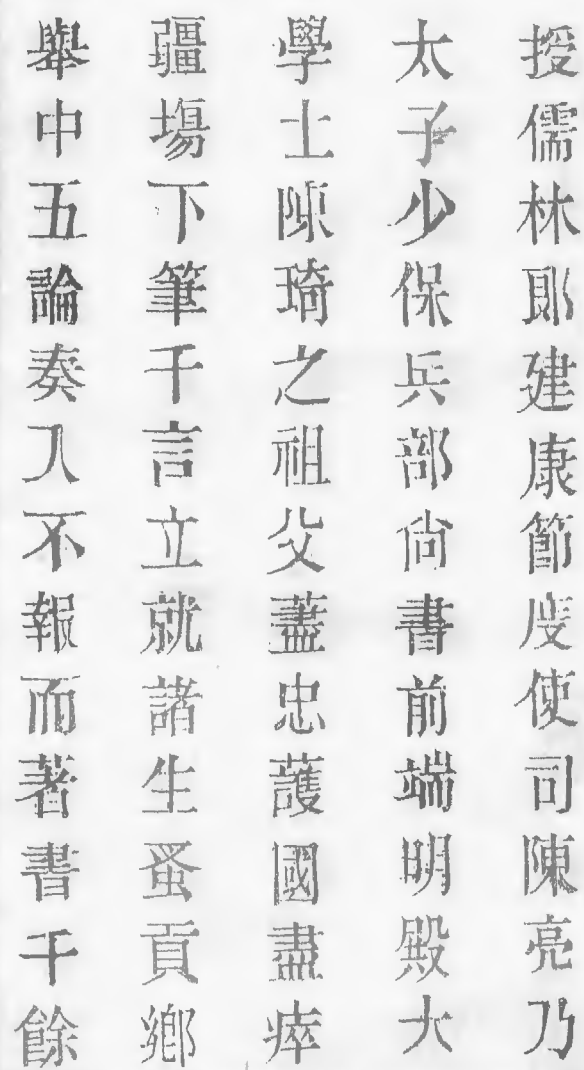 授儒林郎建康節度使司陳亮乃
太子少保兵部尙書前端明殿大
學士陳琦之祖父藎忠護國盡瘁
疆場下筆千言立就諸生蚤貢鄕
舉中五論奏入不報而著書千餘